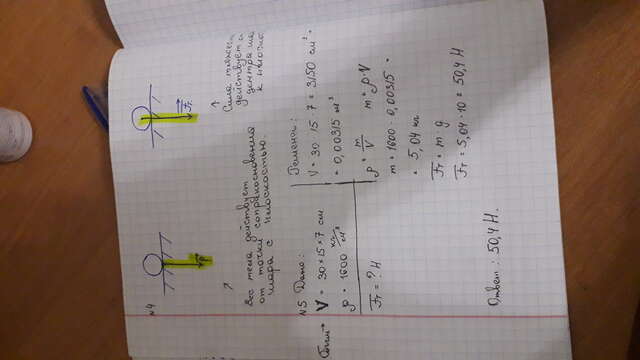 N4
P
Fт.
Вес тела действует
от точки сопрокосновения
шара с плоскостью.
Сила тяжест
действует
центра ша
к плоско
N5 Дано:
V = 30×15×7 см
ρ = 1600 кг/м³
Fт = ? Н
Решение:
V = 30·15·7 = 3150 см³ =
= 0,00315 м³
ρ = m/V m = ρ·V
m = 1600·0,00315 =
= 5,04 кг
Fт = m·g
Fт = 5,04·10 = 50,4 Н
Ответ: 50,4 Н.